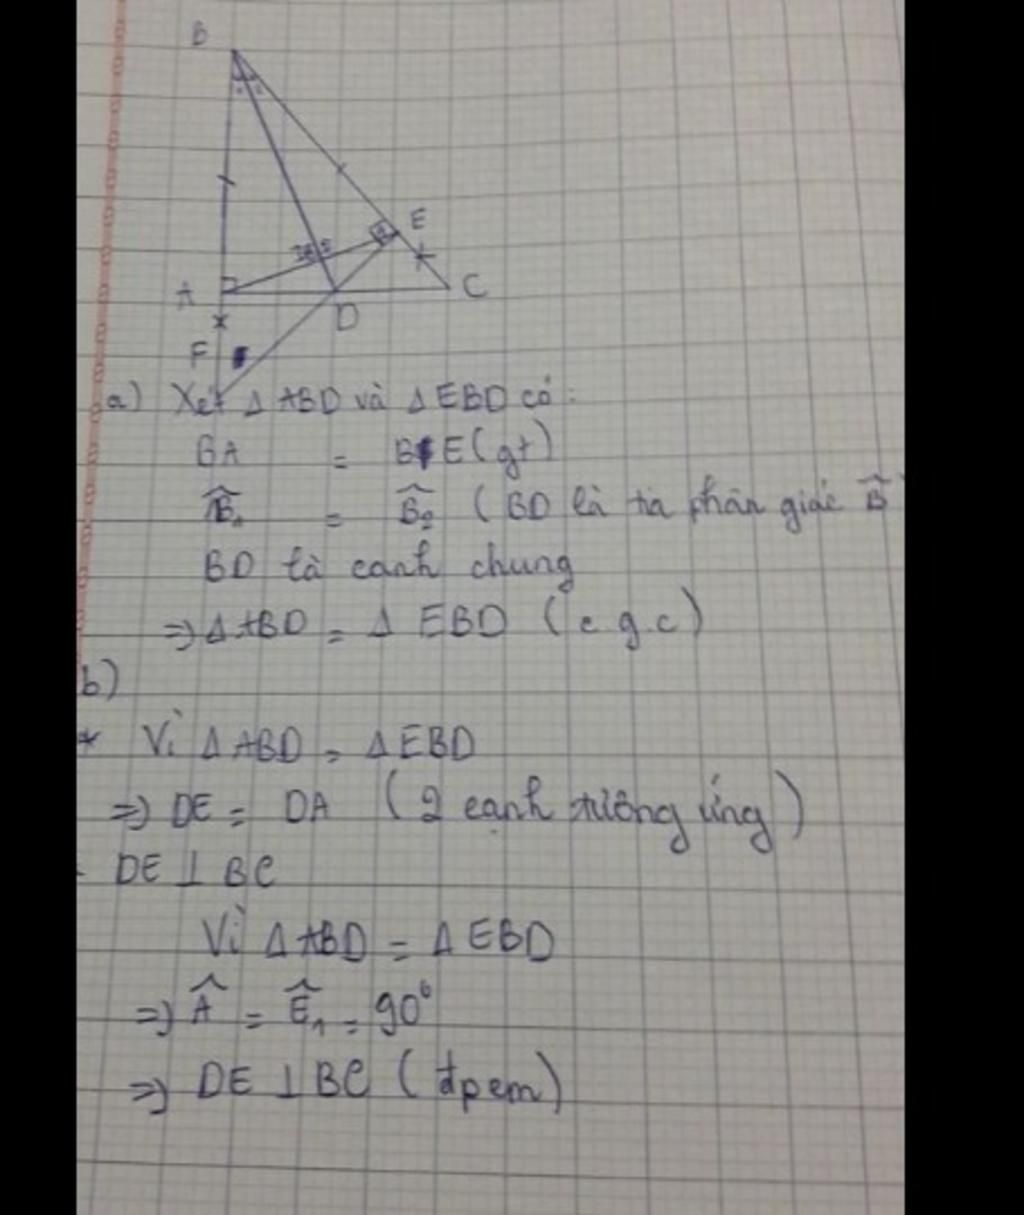 B
E
A
C
D
F
a) Xét Δ ABD và Δ EBD có:
BA = BE (gt)
B̂₁ = B̂₂ (BD là tia phân giác B̂
BD là cạnh chung
=> Δ ABD = Δ EBD (c g.c)
b)
* Vì Δ ABD = Δ EBD
=> DE = DA (2 cạnh tương ứng)
- DE ⊥ BC
Vì Δ ABD = Δ EBD
=> Â = Ê₁ = 90°
=> DE ⊥ BC (đpcm)